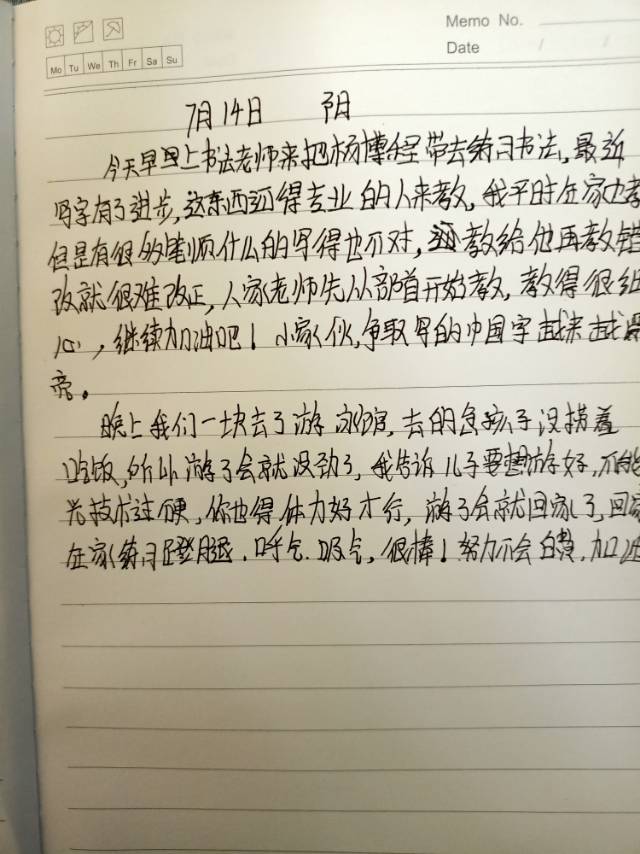 Memo No.
Date / /
Mo Tu We Th Fr Sa Su
7月14日 阴
今天早早上书法老师来把杨博经带去练习书法,最近
写字有了进步,这东西还得专业的人来教,我平时在家也教
但是有很多笔顺什么的写得也不对,还教给他再教错
改就很难改正,人家老师先从部首开始教,教得很细
心,继续加油吧!小家伙,争取写的中国字越来越漂
亮。
晚上我们一块去了游泳馆,去的急孩子没捞着
吃饭,所以游了会就没劲了,我告诉儿子要想游好,不能
光技术过硬,你也得体力好才行,游了会就回家了,回家
在家练习蹬腿.呼气.吸气,很棒!努力不会白费,加油